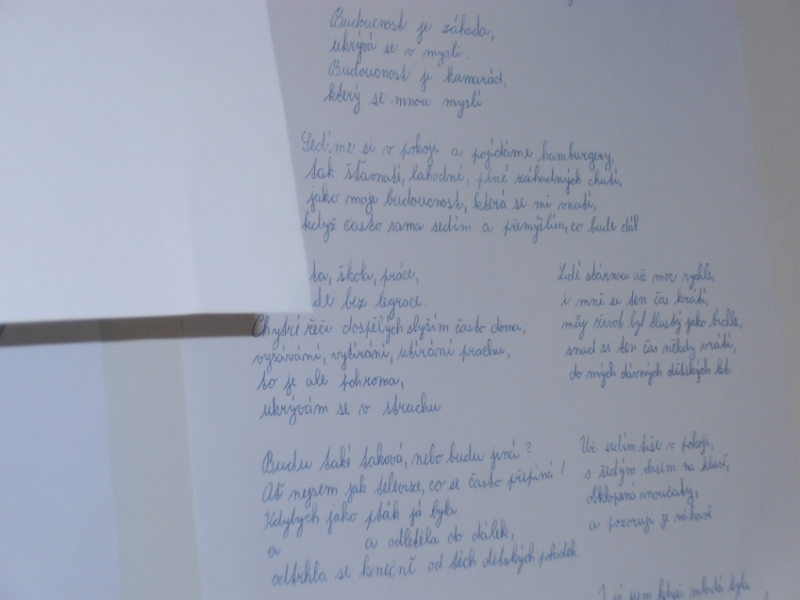 Budoucnost je záhada,
ukrývá se v mysli.
Budoucnost je kamarád,
který se mnou myslí
Sedíme si v pokoji a pojídáme hamburgery,
tak šťavnaté, lahodné, plné záhadných chutí,
jako moje budoucnost, která se mi vnutí,
když často sama sedím a přemýšlím, co bude dál.
ta, škola, práce,
de bez legrace.
Chytré řeči dospělých slyším často doma,
vysávání, vytírání, utírání prachu,
to je ale pohroma,
ukrývám se v strachu
Budu také taková, nebo budu jiná?
Ať nejsem jak televize, co se často přepíná!
Kdybych jako pták já byla
a a odletěla do dálek,
odtrhla se konečně od těch dětských pohádek
Lidé stárnou až moc rychle,
i mně se ten čas krátí,
můj život byl tlustý jako
snad se ten čas někdy vrátí,
do mých dávných dětských let.
Už sedím tiše v pokoji,
s šedým vlasem na hlavě,
obklopená vnoučaty,
a pozoruji je
I já jsem kdysi mladá byla